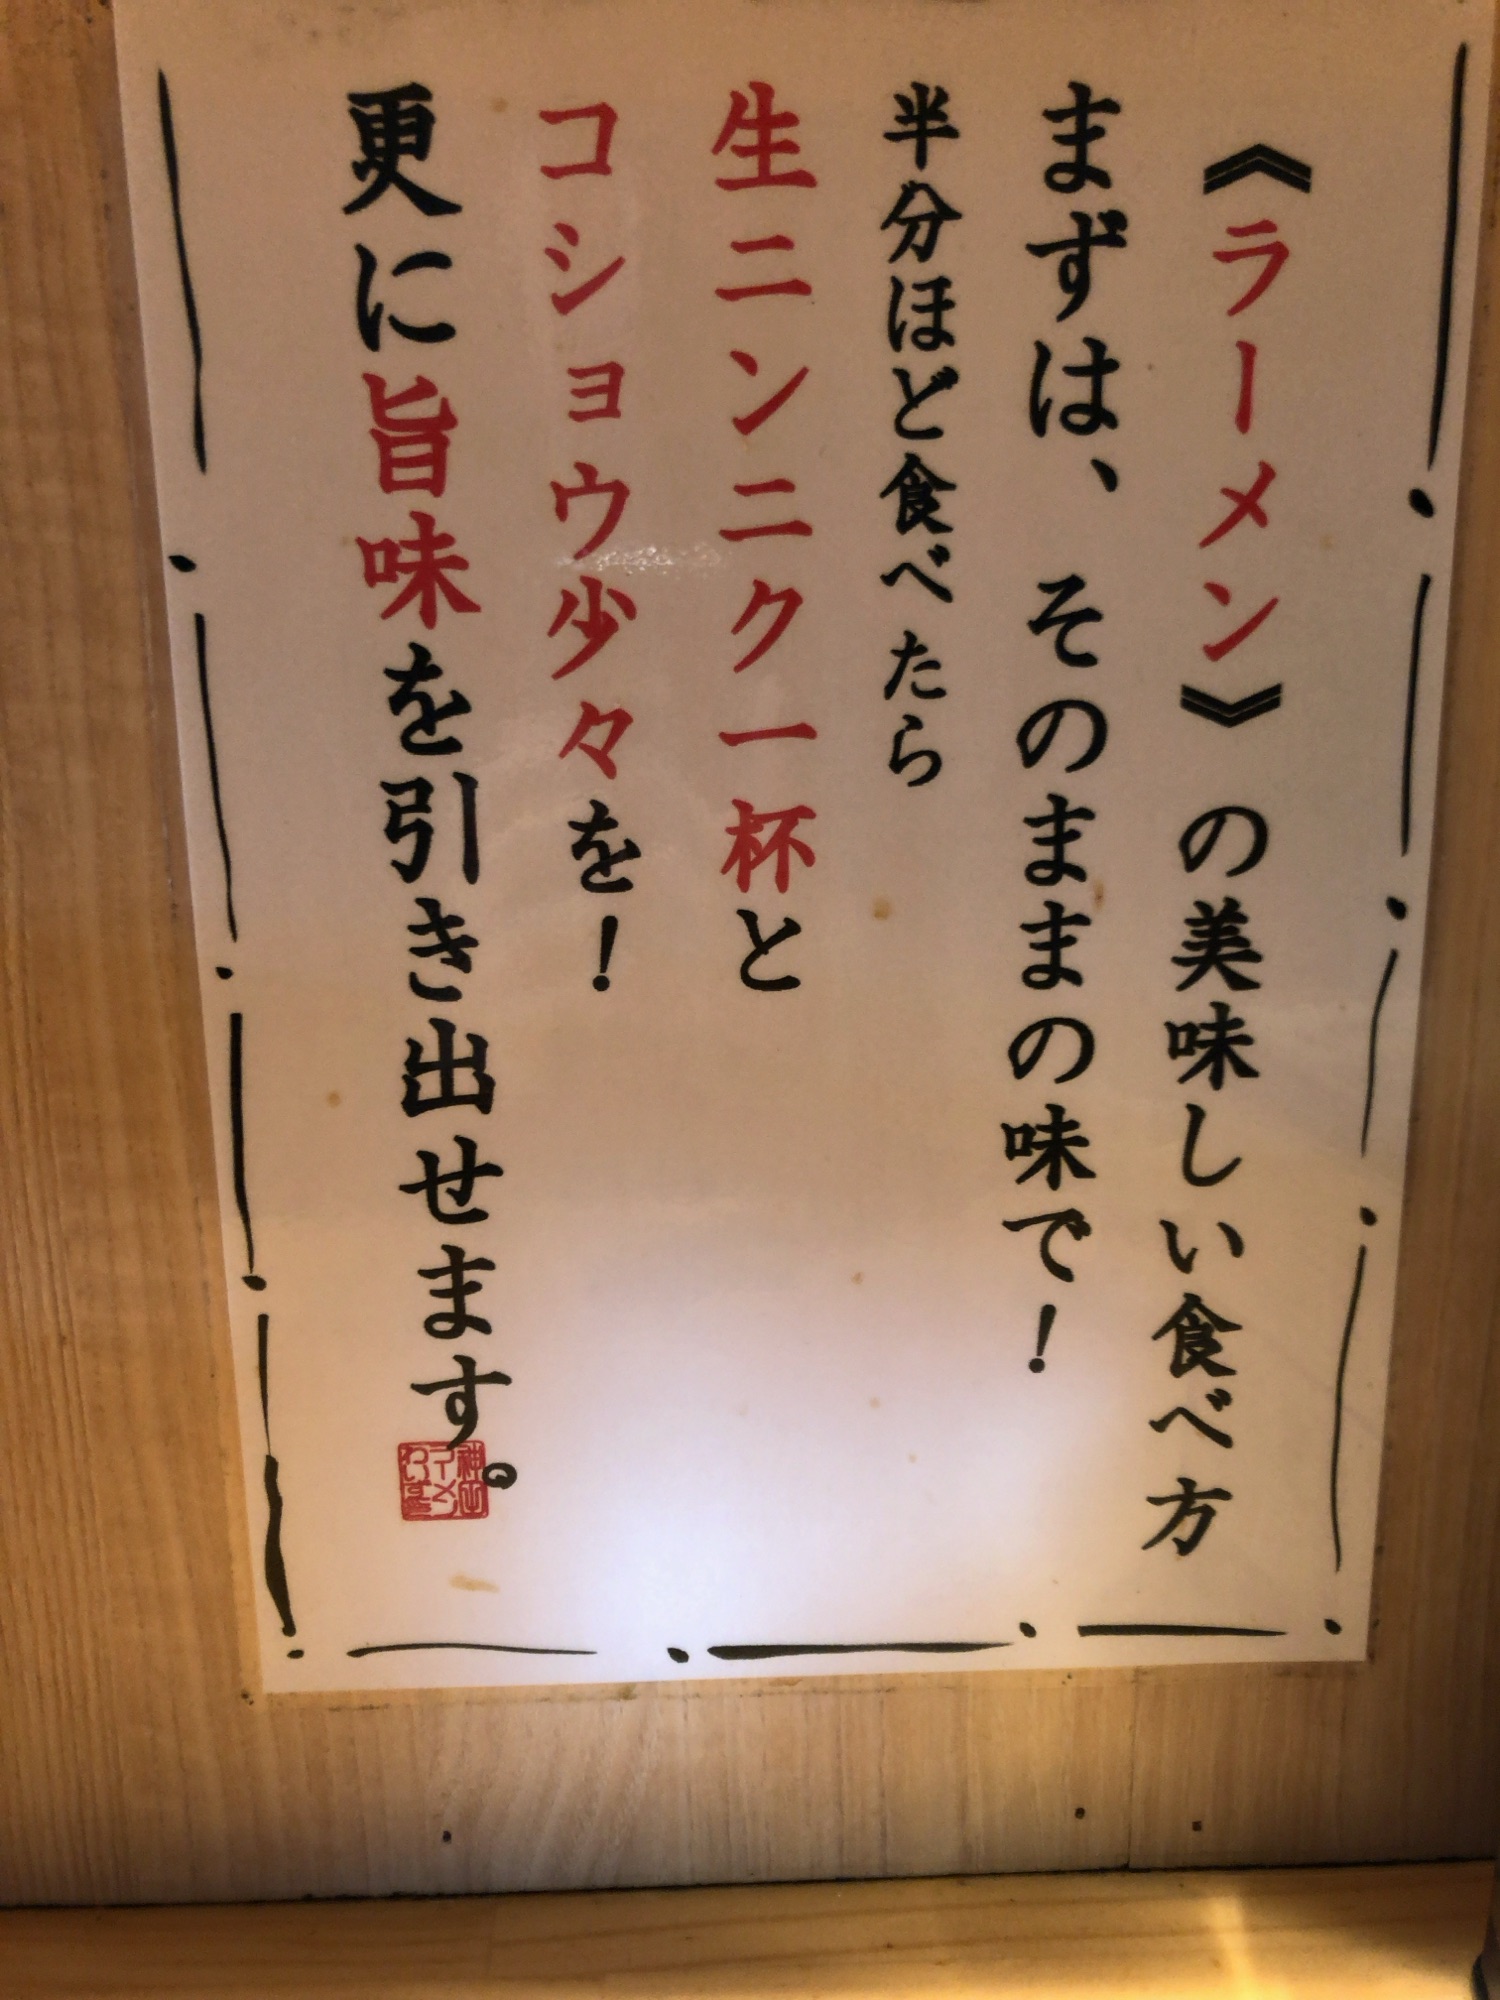 《ラーメン》の美味しい食べ方
まずは、そのままの味で！
半分ほど食べたら
生ニンニク一杯と
コショウ少々を！
更に旨味を引き出せます。
神戸
ラーメン